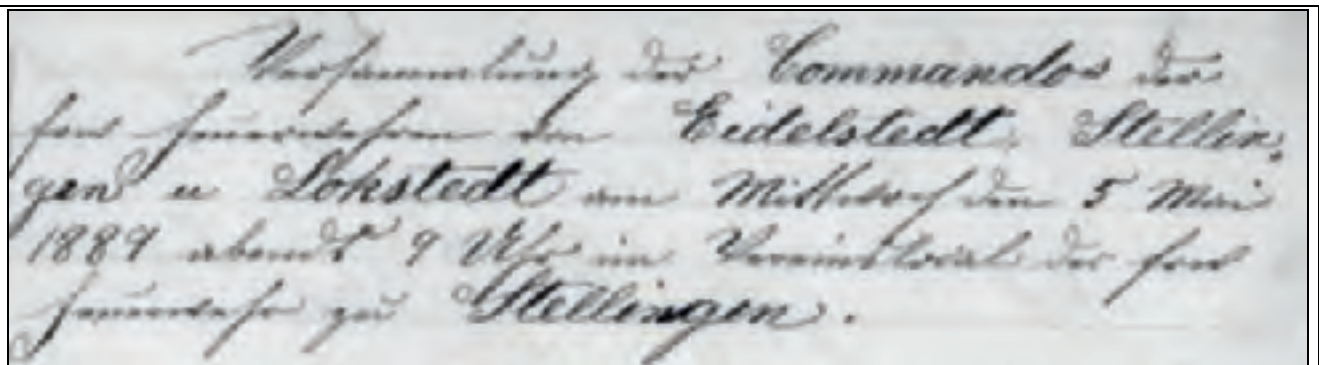 Versammlung der Commandos der
frw Feuerwehren von Eidelstedt, Stellin-
gen u Lokstedt am Mittwoch den 5 Mai
1889 abends 9 Uhr im Vereinslocal der frw
Feuerwehr zu Stellingen.